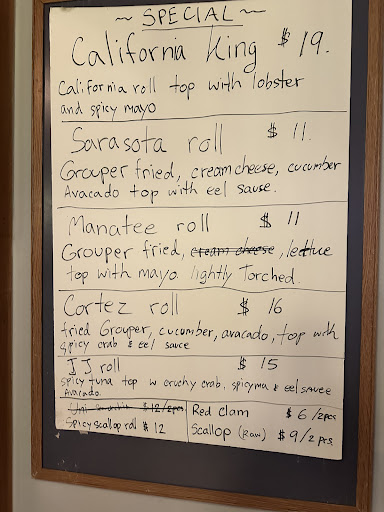 ~ SPECIAL ~
California King $19.
California roll top with lobster
and spicy mayo
Sarasota roll $11.
Grouper fried, cream cheese, cucumber
Avacado top with eel sause.
Manatee roll $11
Grouper fried, cream cheese, lettuce
top with mayo. lightly Torched.
Cortez roll $16
fried Grouper, cucumber, avacado, top with
spicy crab & eel sauce
JJ roll $15
spicy tuna top w cruchy crab, spicyma & eel sauce
Avacado.
Uni $12/2pcs
Spicy scallop roll $12
Red clam $6/2pcs
Scallop (Raw) $9/2 pcs